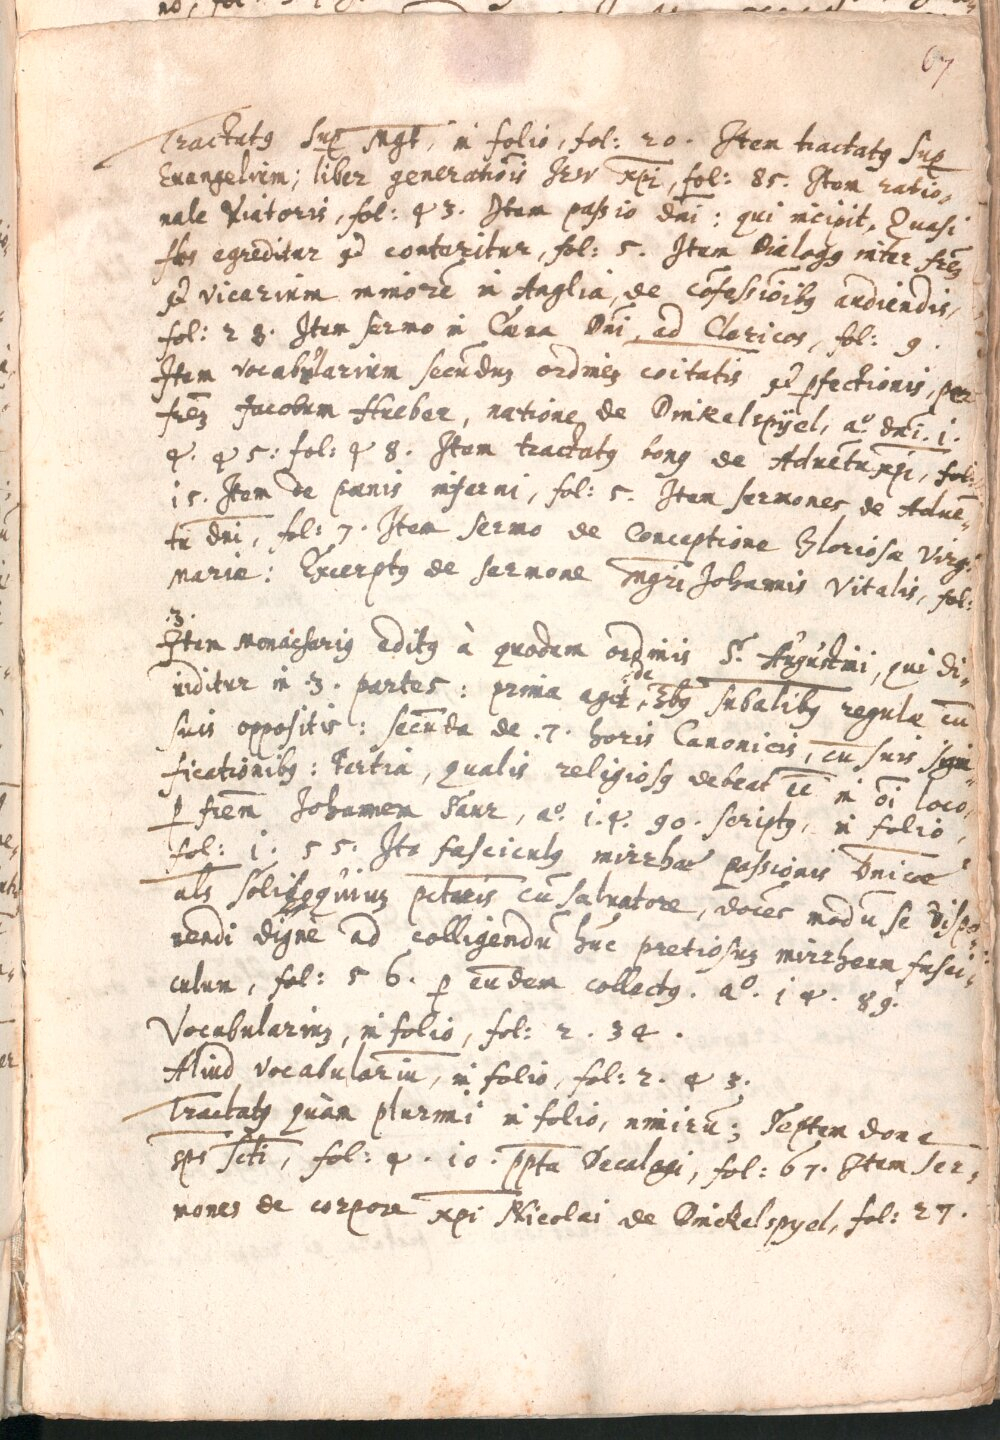 67
Tractatꝯ suꝑ Mgt, in folio, fol: 20. Item tractatꝯ suꝑ
Euangelium; liber generatiōis Jesu xp̄i, fol: 85. Item ratio,
nale Viatoris, fol: 43. Item passio dn̄i: qui incipit, Quasi
flos egreditur et conteritur, fol: 5. Item Dialogꝯ inter frēꝫ
et vicarium minorē in Anglia, de cōfessiōibꝯ audiendis,
fol: 28. Item sermo in Cœna Dn̄i, ad Clericos, fol: 9.
Item vocabularium secunduꝫ ordineꝫ coitatis et ꝑfectionis, per
frēꝫ Jacobum Hueber, natione de Dinkelspÿel, aº. dn̄i. 1.
4. 45: fol: 48. Item tractatꝯ bonꝯ de Aduētu xp̄i, fol:
15. Item de pœnis inferni, fol: 5. Item sermones de Aduē=
tu dn̄i, fol: 7. Item sermo de Conceptione Gloriosæ Virg:
Mariæ: Excerptꝯ de sermone Mgri Johannis Vitalis, fol:
.3.
Item Monachariꝯ editꝯ à quodam ordinis S. Augustini, qui di=
uiditur in .3. partes: prima aget de Ebꝯ subalibꝯ regulæ cū
suis oppositis: secūda de .7. horis Canonicis, cū suis signi=
ficationibꝯ: Tertia, qualis religiosꝯ debeat ēē in ōi loco,
ꝑ frēm Johannem Taur, aº. 1.4. 90. scriptꝯ, in folio,
fol: 1. 55. Itē fasciculꝯ mirrhæ passionis Dn̄icæ
als̄ soliloquiuꝫ pctoris cū saluatore, docēs modū se dispo=
nendi dignè ad colligendū hūc pretiosuꝫ mirrhæum fasci=
culum, fol: 56. ꝑ eūdem collectꝯ. aº. 14. 89.
Vocabulariuꝫ, in folio, fol: 2. 34.
Aliud vocabulariū, in folio, fol: 2. 43.
Tractatꝯ quàm plurimi in folio, nimirū; Septem dona
sps̄ scti, fol: 4. 10. ppta Decalogi, fol: 67. Item ser=
mones de corpore xp̄i Nicolai de Dinckelspyel, fol: 27.